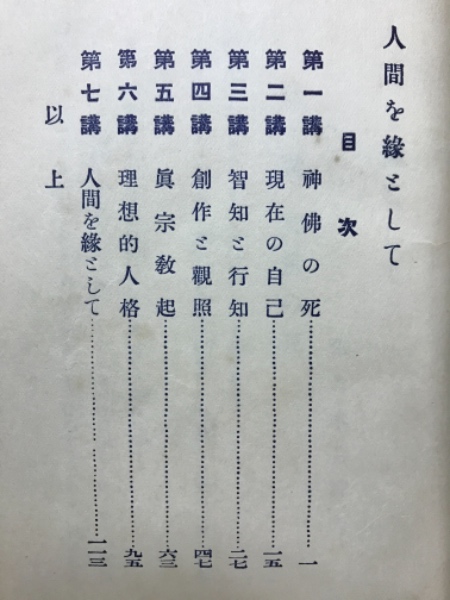 人間を縁として
目次
第一講 神佛の死………一
第二講 現在の自己………一五
第三講 智知と行知………二七
第四講 創作と觀照………四七
第五講 眞宗教起………六三
第六講 理想的人格………九五
第七講 人間を縁として………一一三
以上